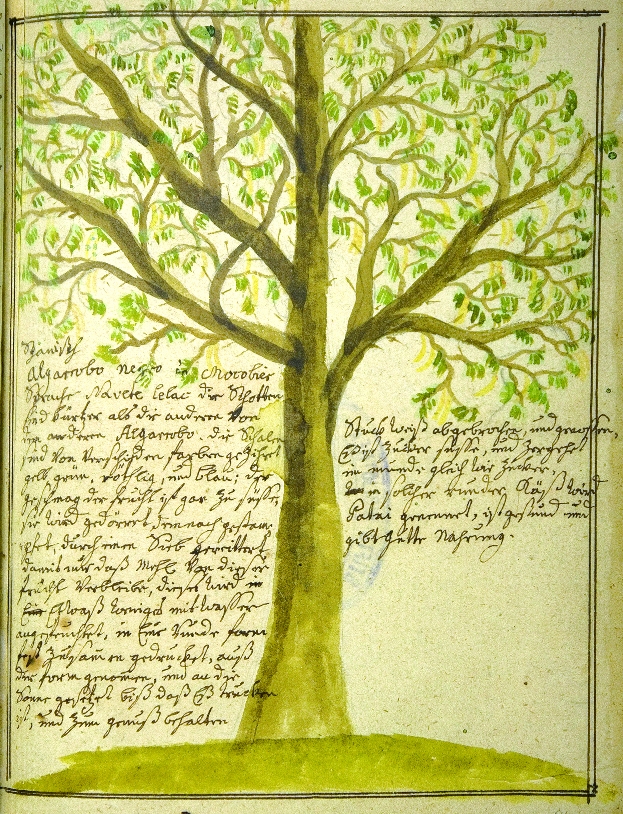 Spanisch
Algarrobo negro in Mocobier
Sprache Navelc lelac die Schotten
sind kürtzer als die anderen von
den anderen Algarrobo. die Schale
sind von verschiden farben gezihret
gelb, grün, röthlig, und blau; der
geschmag der frücht ist gar zu süsse,
sie wird gedörret, demnach gestam-
pfet, durch einen Sieb gereittert
damit nur daß Mehl von diser
frücht verbleibe, dieses wird in
Gfäß weniges mit wasser
angefeuchtet, in eine runde form
fest zusammen gedrucket, auß
der form genomen, und an die
Sonne gesetzet biß daß Es trucken
ist, und zum genuß behalten
Stuckweiß abgebrochen, und genossen,
Es ist zucker süsse, und zergehet
im munde gleich wie zucker.
in solcher runder Käß wird
Patai genennet, ist gesund und
gibt gutte Nahrung.